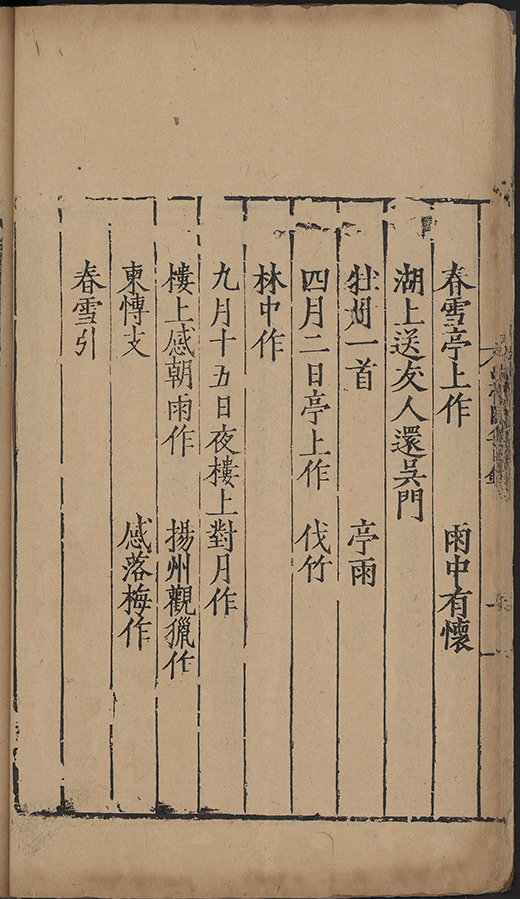 春雪亭上作　雨中有懷
湖上送友人還吳門
一首　亭雨
四月二日亭上作　伐竹
林中作
九月十五日夜樓上對月作
樓上感朝雨作　揚州觀獵作
柬慱支　感落梅作
春雪引